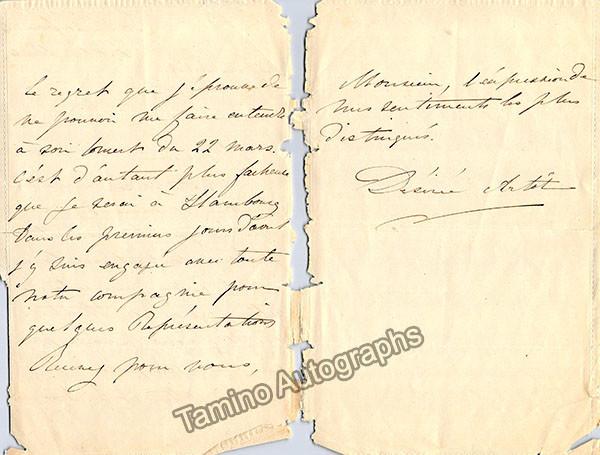 le regret que j'éprouve de
ne pouvoir me faire entendre
à son concert du 22 mars.
C'est d'autant plus facheux
que je serai à Hambourg
dans les premiers jours d'avril
j'y suis engagée avec toute
notre compagnie pour
quelques Représentations
Recevez pour vous,
Monsieur, l'expression de
mes sentiments les plus
distingués.
Désirée Artôt
Tamino Autographs